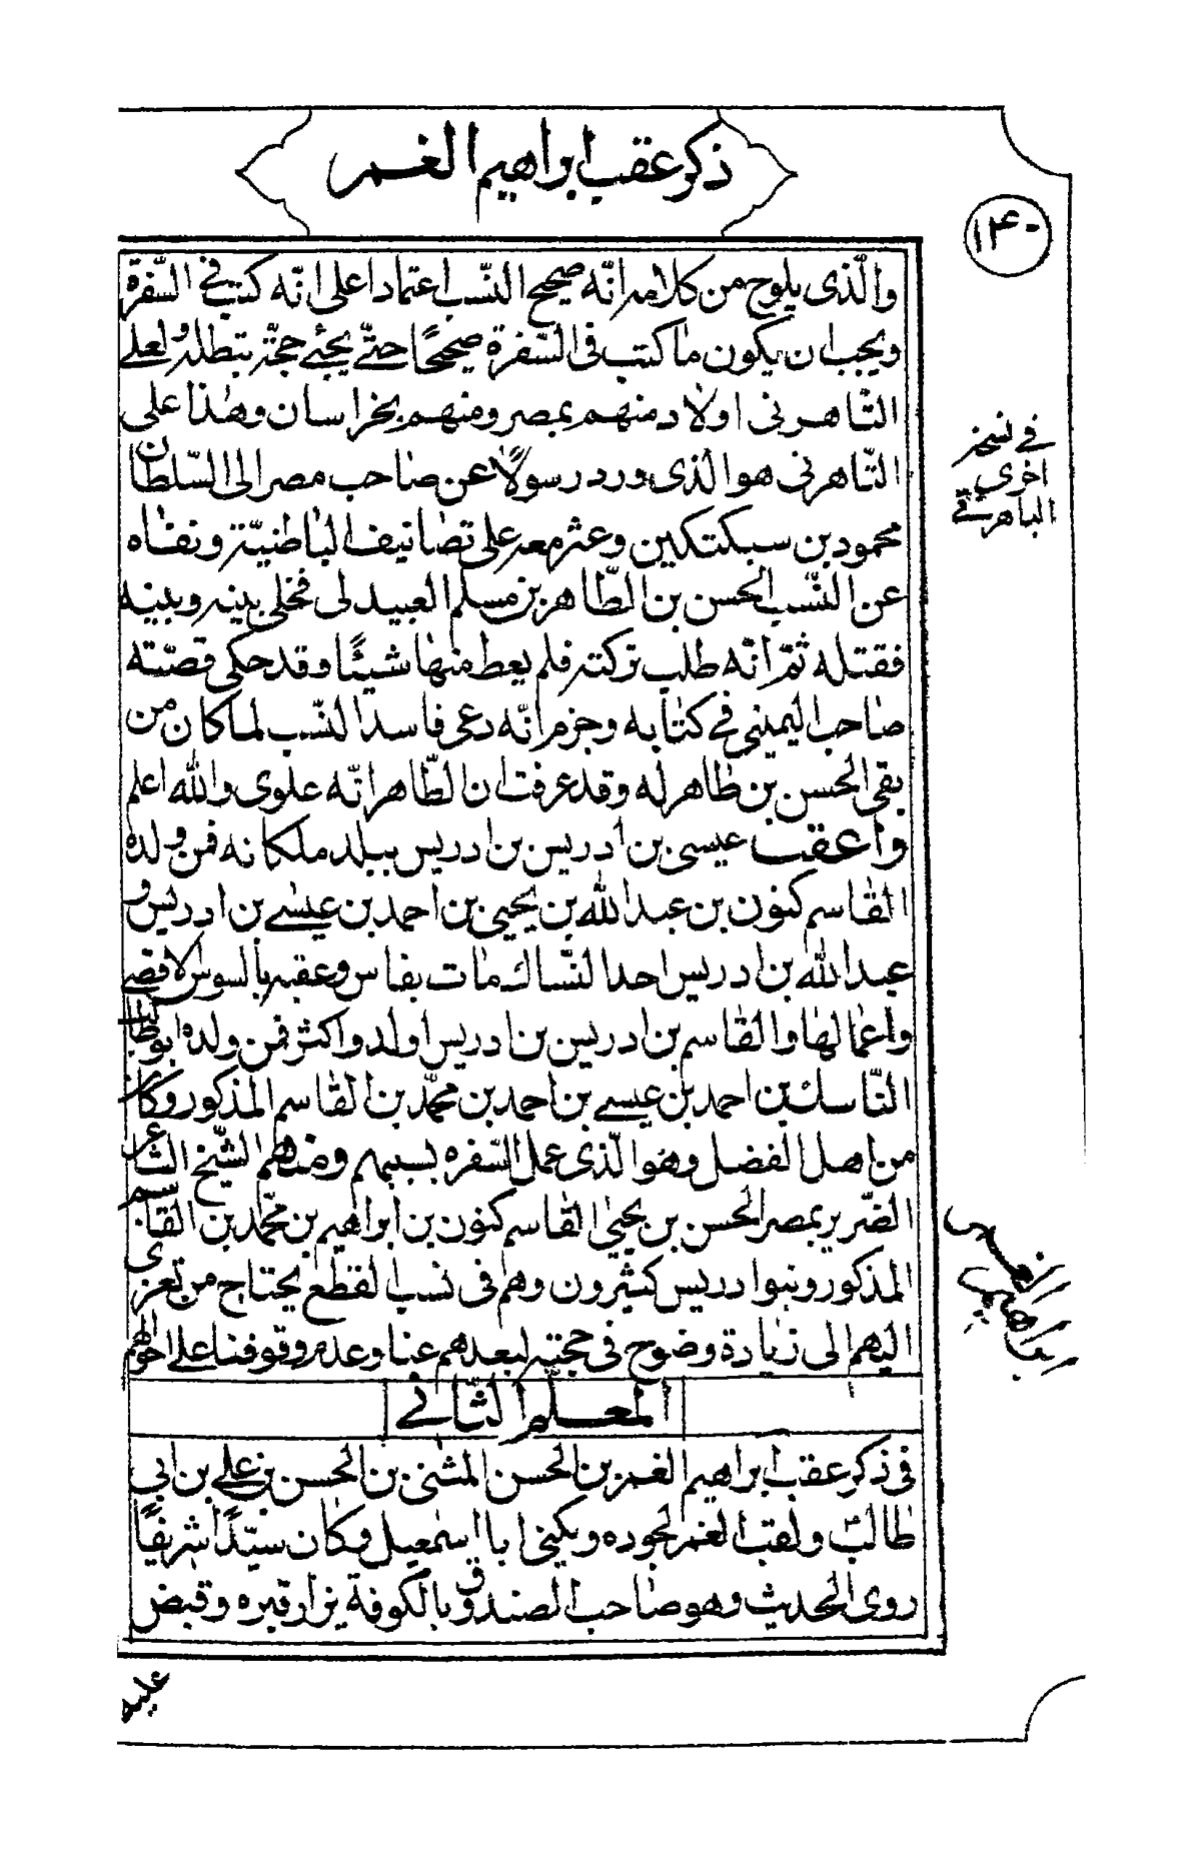 ذكر عقب ابراهيم الغمر
١٤٠
والّذى يلوح من كلامه انّه صحيح النّسب اعتمادا على انّه كتب فى السّفرة
ويجب ان يكون ما كتب فى السّفرة صحيحًا حتّى يجئ حجّة بتطله ولعلى
التّاهرنى اولاد منهم بمصر ومنهم بخراسان وهذا على
التّاهرنى هو الّذى ورد رسولًا عن صاحب مصر الى السّلطان
محمود بن سبكتكين وعثر معه على تصانيف الباطنيّة ونفاه
عن النّسب الحسن بن الطّاهر بن مسلم العبيدلى فخلى بينه وبينه
فقتله ثمّ انّه طلب تركته فلم يعط منها شيئًا وقد حكى قصّته
صاحب اليمينى فى كتابه وجزم انّه دعى فاسد النّسب لما كان من
بقى الحسن بن طاهر له وقد عرفت ان الطّاهر انّه علوى والله اعلم
واعقب عيسى بن ادريس بن ادريس ببلد ملكانه فمن ولده
القاسم كنون بن عبد الله بن يحيى بن احمد بن عيسى بن ادريس و
عبد الله بن ادريس احد النّساك مات بفاس وعقبه بالسوس الاقصى
واعمالها والقاسم بن ادريس بن ادريس اولد واكثر فمن ولده ابو طالب
النّاسك بن احمد بن عيسى بن احمد بن محمّد بن القاسم المذكور وكان
من اهل الفضل وهو الّذى عمل السّفره بسببهم ومنهم الشّيخ الشاعر
الضّرير بمصر الحسن بن يحيى القاسم كنون بن ابراهيم بن محمّد بن القاسم
المذكور وبنوا دريس كثيرون وهم فى نسب القطع يحتاج من تعزى
اليهم الى زيادة وضوح فى حجته لبعدهم عنا وعدم وقوفنا على احوالهم
المعلم الثّانى
فى ذكر عقب ابراهيم الغمر بن الحسن المثنى بن الحسن بن على بن ابى
طالبؑ ولقب الغمر لجوده ويكنى ابا اسمعيل وكان سيّدًا شريفًا
روى الحديث وهو صاحب الصندوق بالكوفة يزار قبره وقبض
فى نسخة
اخرى
الباهرقى
عليه